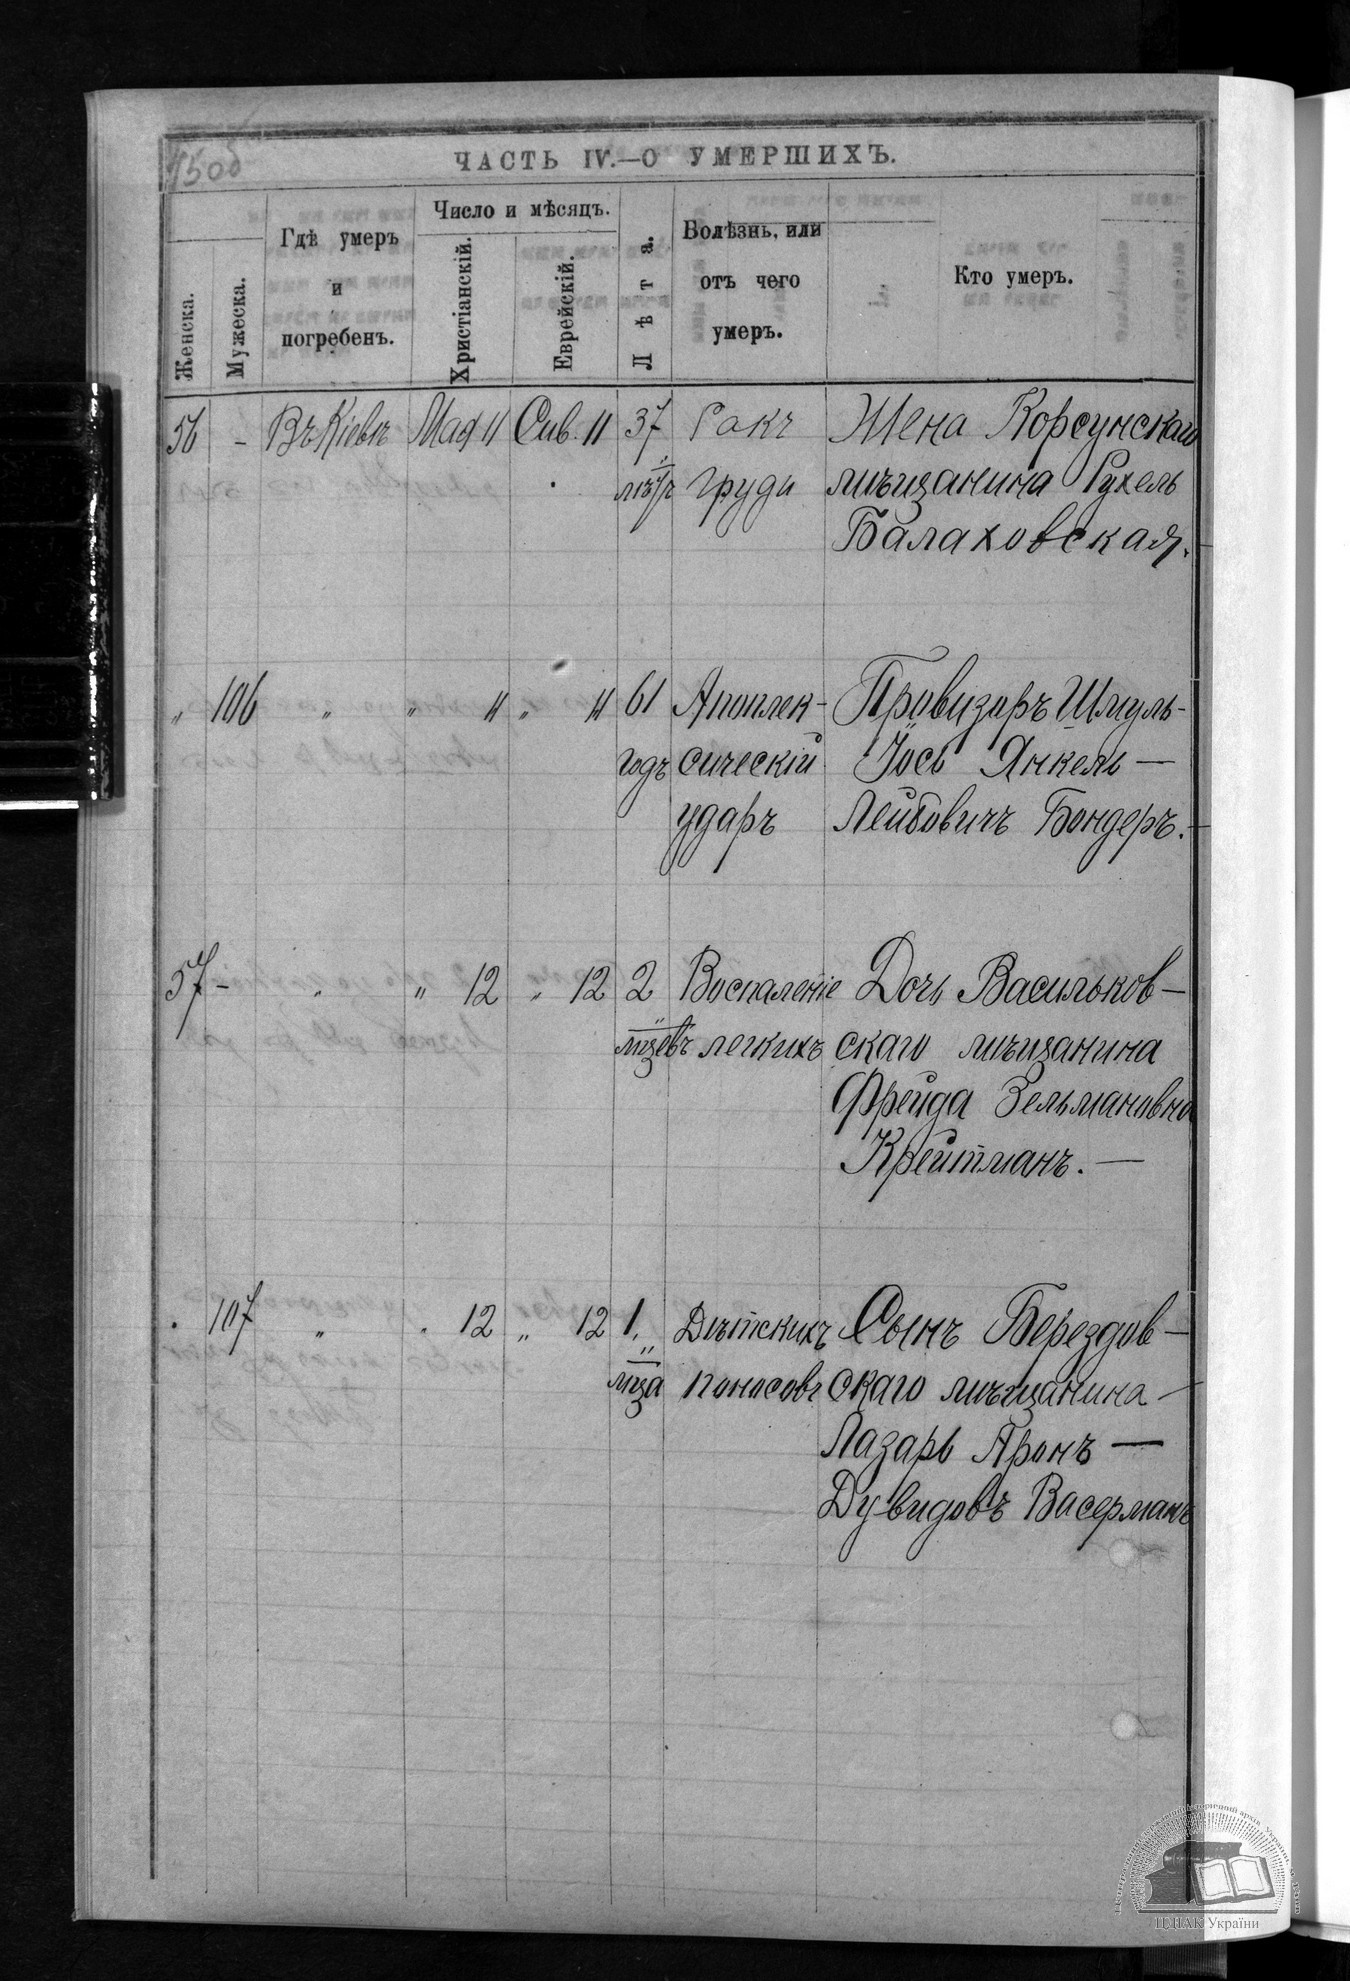 ЧАСТЬ IV.—О УМЕРШИХЪ.
Женска.
Мужеска.
Гдѣ умеръ
и
погребенъ.
Число и мѣсяцъ.
Христіанскій.
Еврейскій.
Лѣта.
Болѣзнь, или
отъ чего
умеръ.
Кто умеръ.
56 - Въ Кіевѣ Мая 11 Сив. 11 37 Ракъ Жена Корсунскаго
лѣтъ груди мѣщанина Рухель
Балаховская.
" 106 " " 11 " 11 61 Апоплек- Провизоръ Шмуль-
годъ сическій Іось Янкель —
ударъ Лейбовичъ Бондеръ. —
57 - " " 12 " 12 2 Воспаленіе Дочь Васильков-
мѣсѣвъ легкихъ скаго мѣщанина
Фрейда Зельмановна
Крейтманъ. —
107 " " 12 " 12 1. Дѣтскихъ Сынъ Берездов-
мѣса поносовъ скаго мѣщанина —
Лазарь Аронъ —
Дувидовъ Васерманъ
ЦДІАК України